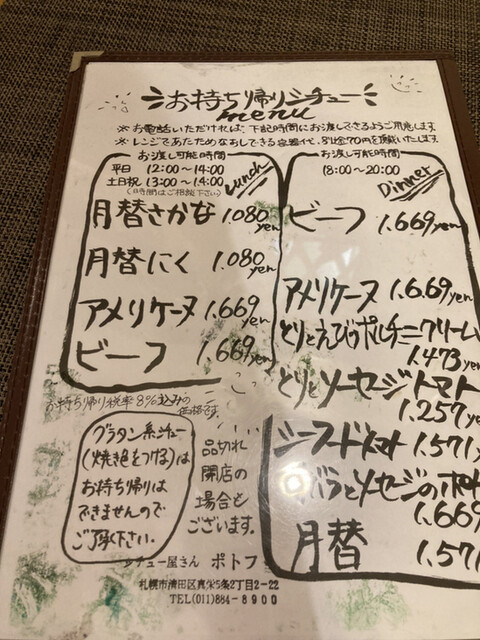 お持ち帰りシチュー
menu
※お電話いただければ、下記時間にお渡しできるようご用意します。
※レンジであたためなおしできる容器代、別途70円を頂戴いたします。
お渡し可能時間
平日 12:00〜14:00
土日祝 13:00〜14:00
(時間はご相談下さい)
Lunch
月替さかな 1.080yen
月替にく 1.080yen
アメリケーヌ 1.669yen
ビーフ 1.669yen
お渡し可能時間
18:00〜20:00
Dinner
ビーフ 1.669yen
アメリケーヌ 1.669yen
とりとえびのポルチーニクリーム
1.473yen
とりとソーセージトマト
1.257ye
シーフードトマト 1.571y
とソーセージのポト
1.669
月替 1.571
お持ち帰り税率8%込みの
価格です。
グラタン系シチュー
(焼き色をつける)は
お持ち帰りは
できませんので
ご了承下さい。
品切れ
閉店の
場合も
ございます。
シチュー屋さん ポトフ
札幌市清田区真栄5条2丁目2-22
TEL(011)884-8900